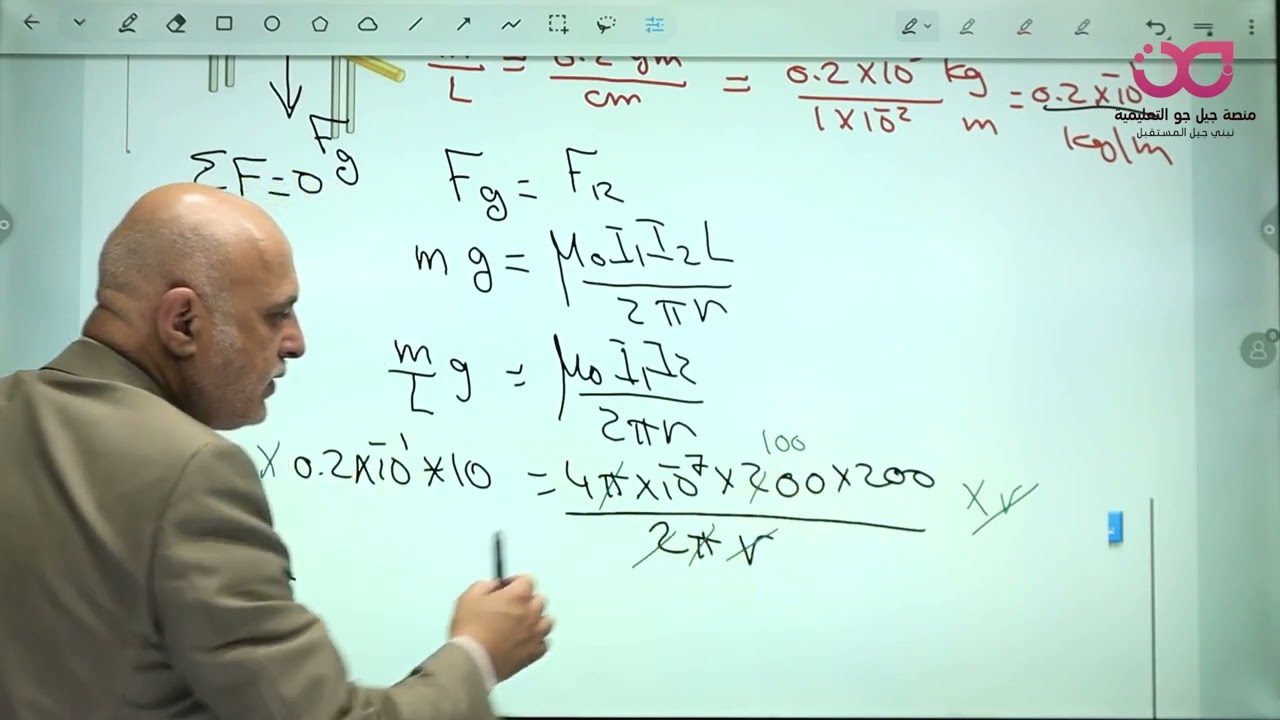 m/L = 0.2 gm/cm = 0.2×10⁻ kg / 1×10⁻² m = 0.2×10⁻¹ kg/m
منصة جيل جو التعليمية
نبني جيل المستقبل
Fg
ΣF=0
Fg = F12
mg = μ0I1I2L / 2πr
m/L g = μ0I1I2 / 2πr
100
× 0.2×10⁻¹*10 = 4π×10⁻⁷×200×200 / 2πr × r